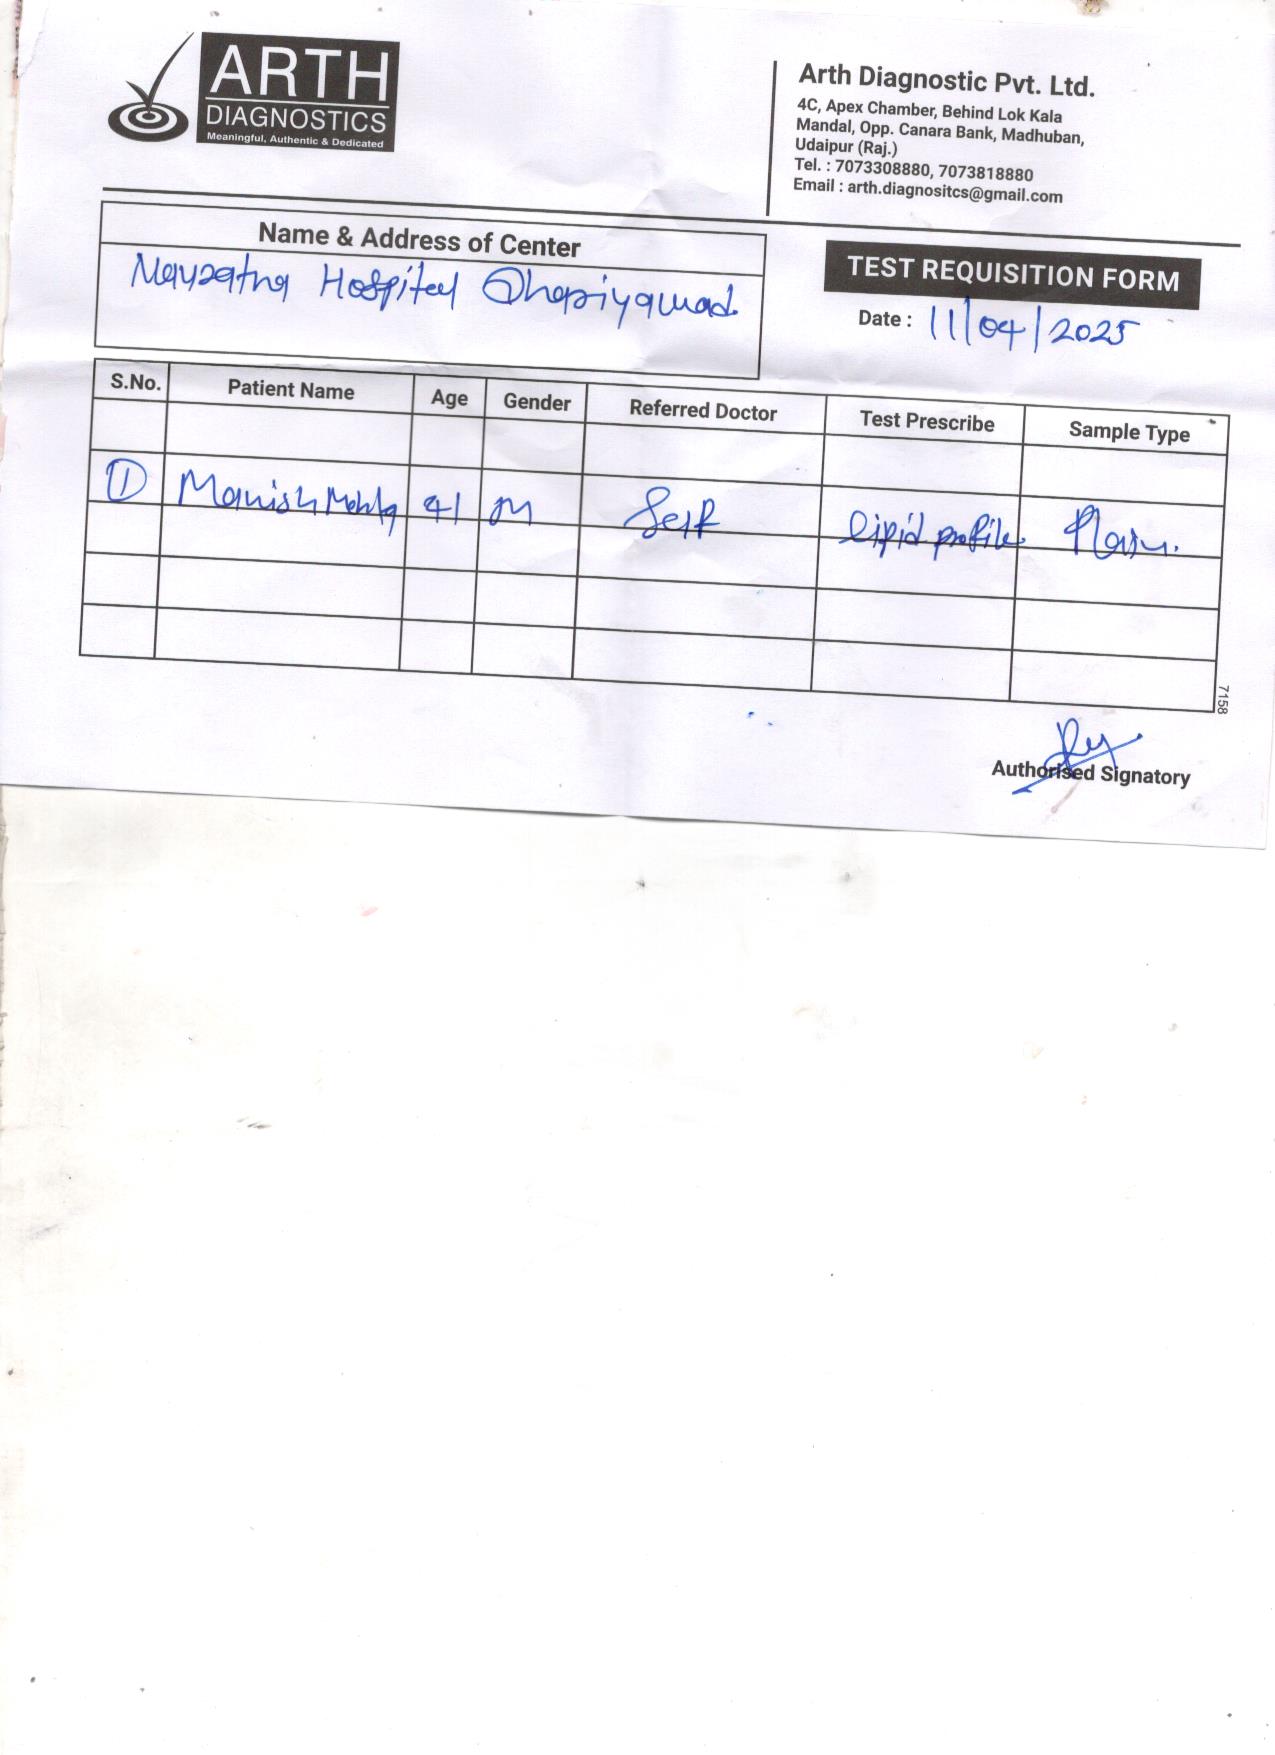 ARTH
DIAGNOSTICS
Meaningful, Authentic & Dedicated
Arth Diagnostic Pvt. Ltd.
4C, Apex Chamber, Behind Lok Kala
Mandal, Opp. Canara Bank, Madhuban,
Udaipur (Raj.)
Tel. : 7073308880, 7073818880
Email : arth.diagnositcs@gmail.com
Name & Address of Center
Hospital
TEST REQUISITION FORM
Date : 11/04/2025
S.No. Patient Name Age Gender Referred Doctor Test Prescribe Sample Type
1 Manish Mehta 41 M Self lipid profile Plain.
7158
Authorised Signatory